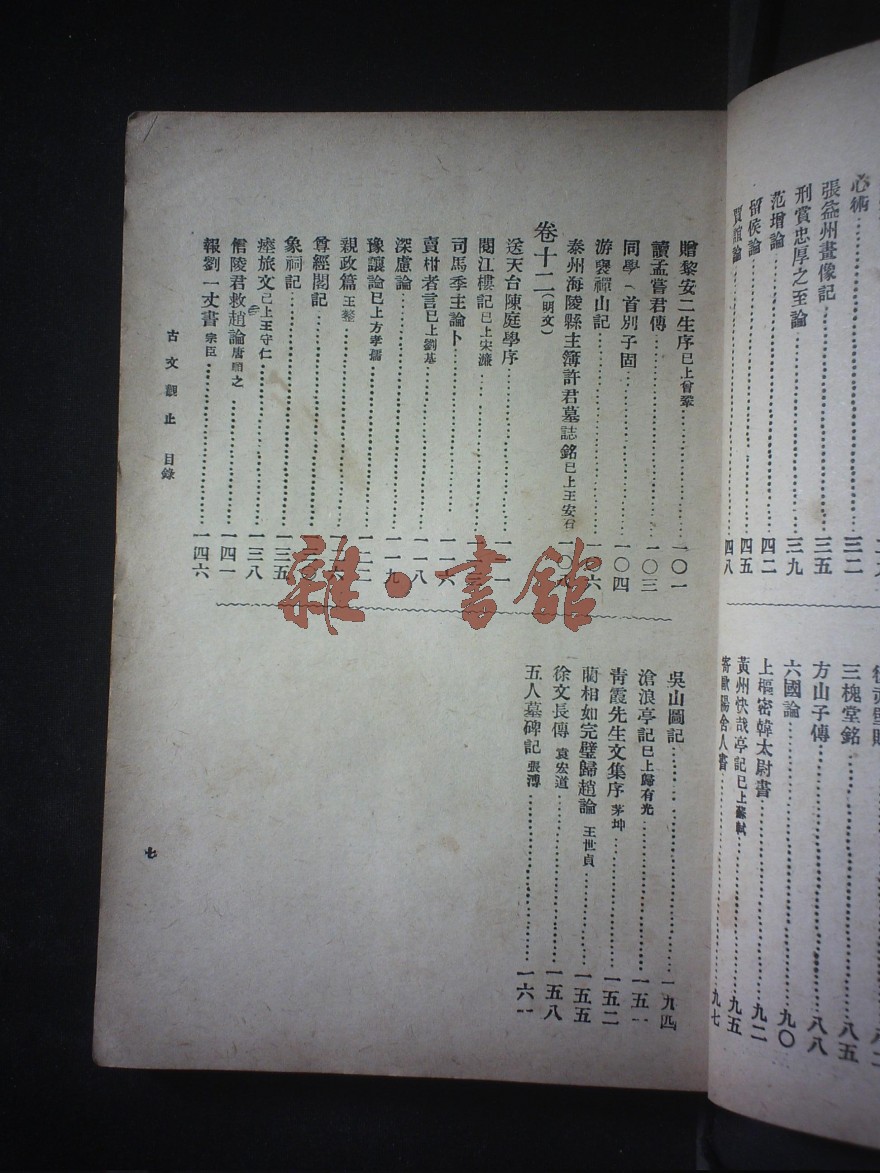 心術 三二
張益州畫像記 三五
刑賞忠厚之至論 三九
范增論 四二
留侯論 四五
賈誼論 四八
三槐堂銘 八五
方山子傳 八八
六國論 九〇
上樞密韓太尉書 九二
黃州快哉亭記 已上蘇軾 九五
寄歐陽舍人書 九七
贈黎安二生序 已上曾鞏 一〇一
讀孟嘗君傳 一〇三
同學一首別子固 一〇四
游褒禪山記 一〇六
泰州海陵縣主簿許君墓誌銘 已上王安石 一〇九
卷十二(明文)
送天台陳庭學序
閱江樓記 已上宋濂
司馬季主論卜 一一六
賣柑者言 已上劉基 一一八
深慮論 一一九
豫讓論 已上方孝孺 一二二
親政篇 王鏊
尊經閣記
象祠記 一三五
瘞旅文 已上王守仁 一三八
信陵君救趙論 唐順之 一四一
報劉一丈書 宗臣 一四六
吳山圖記 一九四
滄浪亭記 已上歸有光 一五一
青霞先生文集序 茅坤 一五二
藺相如完璧歸趙論 王世貞 一五五
徐文長傳 袁宏道 一五八
五人墓碑記 張溥 一六一
古文觀止 目錄
七
雜·書館